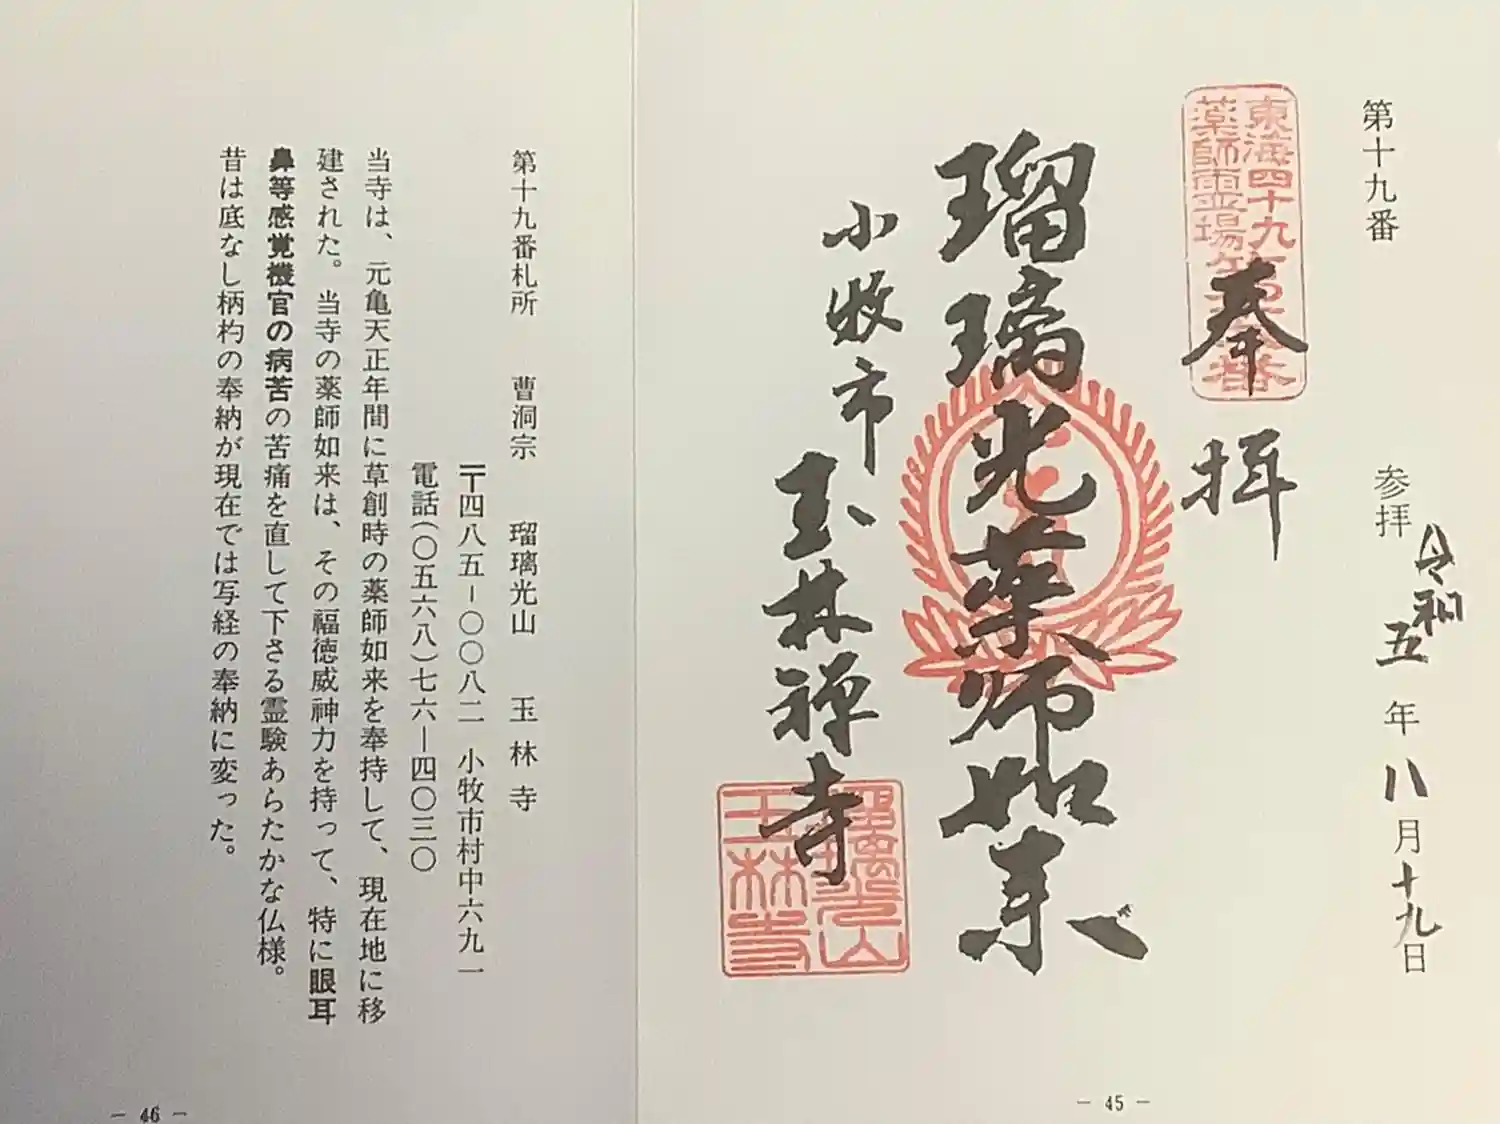 第十九番
参拝 令和五年八月十九日
東海四十九
薬師霊場第十九番
奉拝
瑠璃光薬師如来
小牧市
玉林禅寺
瑠璃光山
玉林寺
- 45 -
第十九番札所 曹洞宗 瑠璃光山 玉林寺
〒四八五-〇〇八二 小牧市村中六九一
電話(〇五六八)七六-四〇三〇
当寺は、元亀天正年間に草創時の薬師如来を奉持して、現在地に移
建された。当寺の薬師如来は、その福徳威神力を持って、特に眼耳
鼻等感覚機官の病苦の苦痛を直して下さる霊験あらたかな仏様。
昔は底なし柄杓の奉納が現在では写経の奉納に変った。
- 46 -